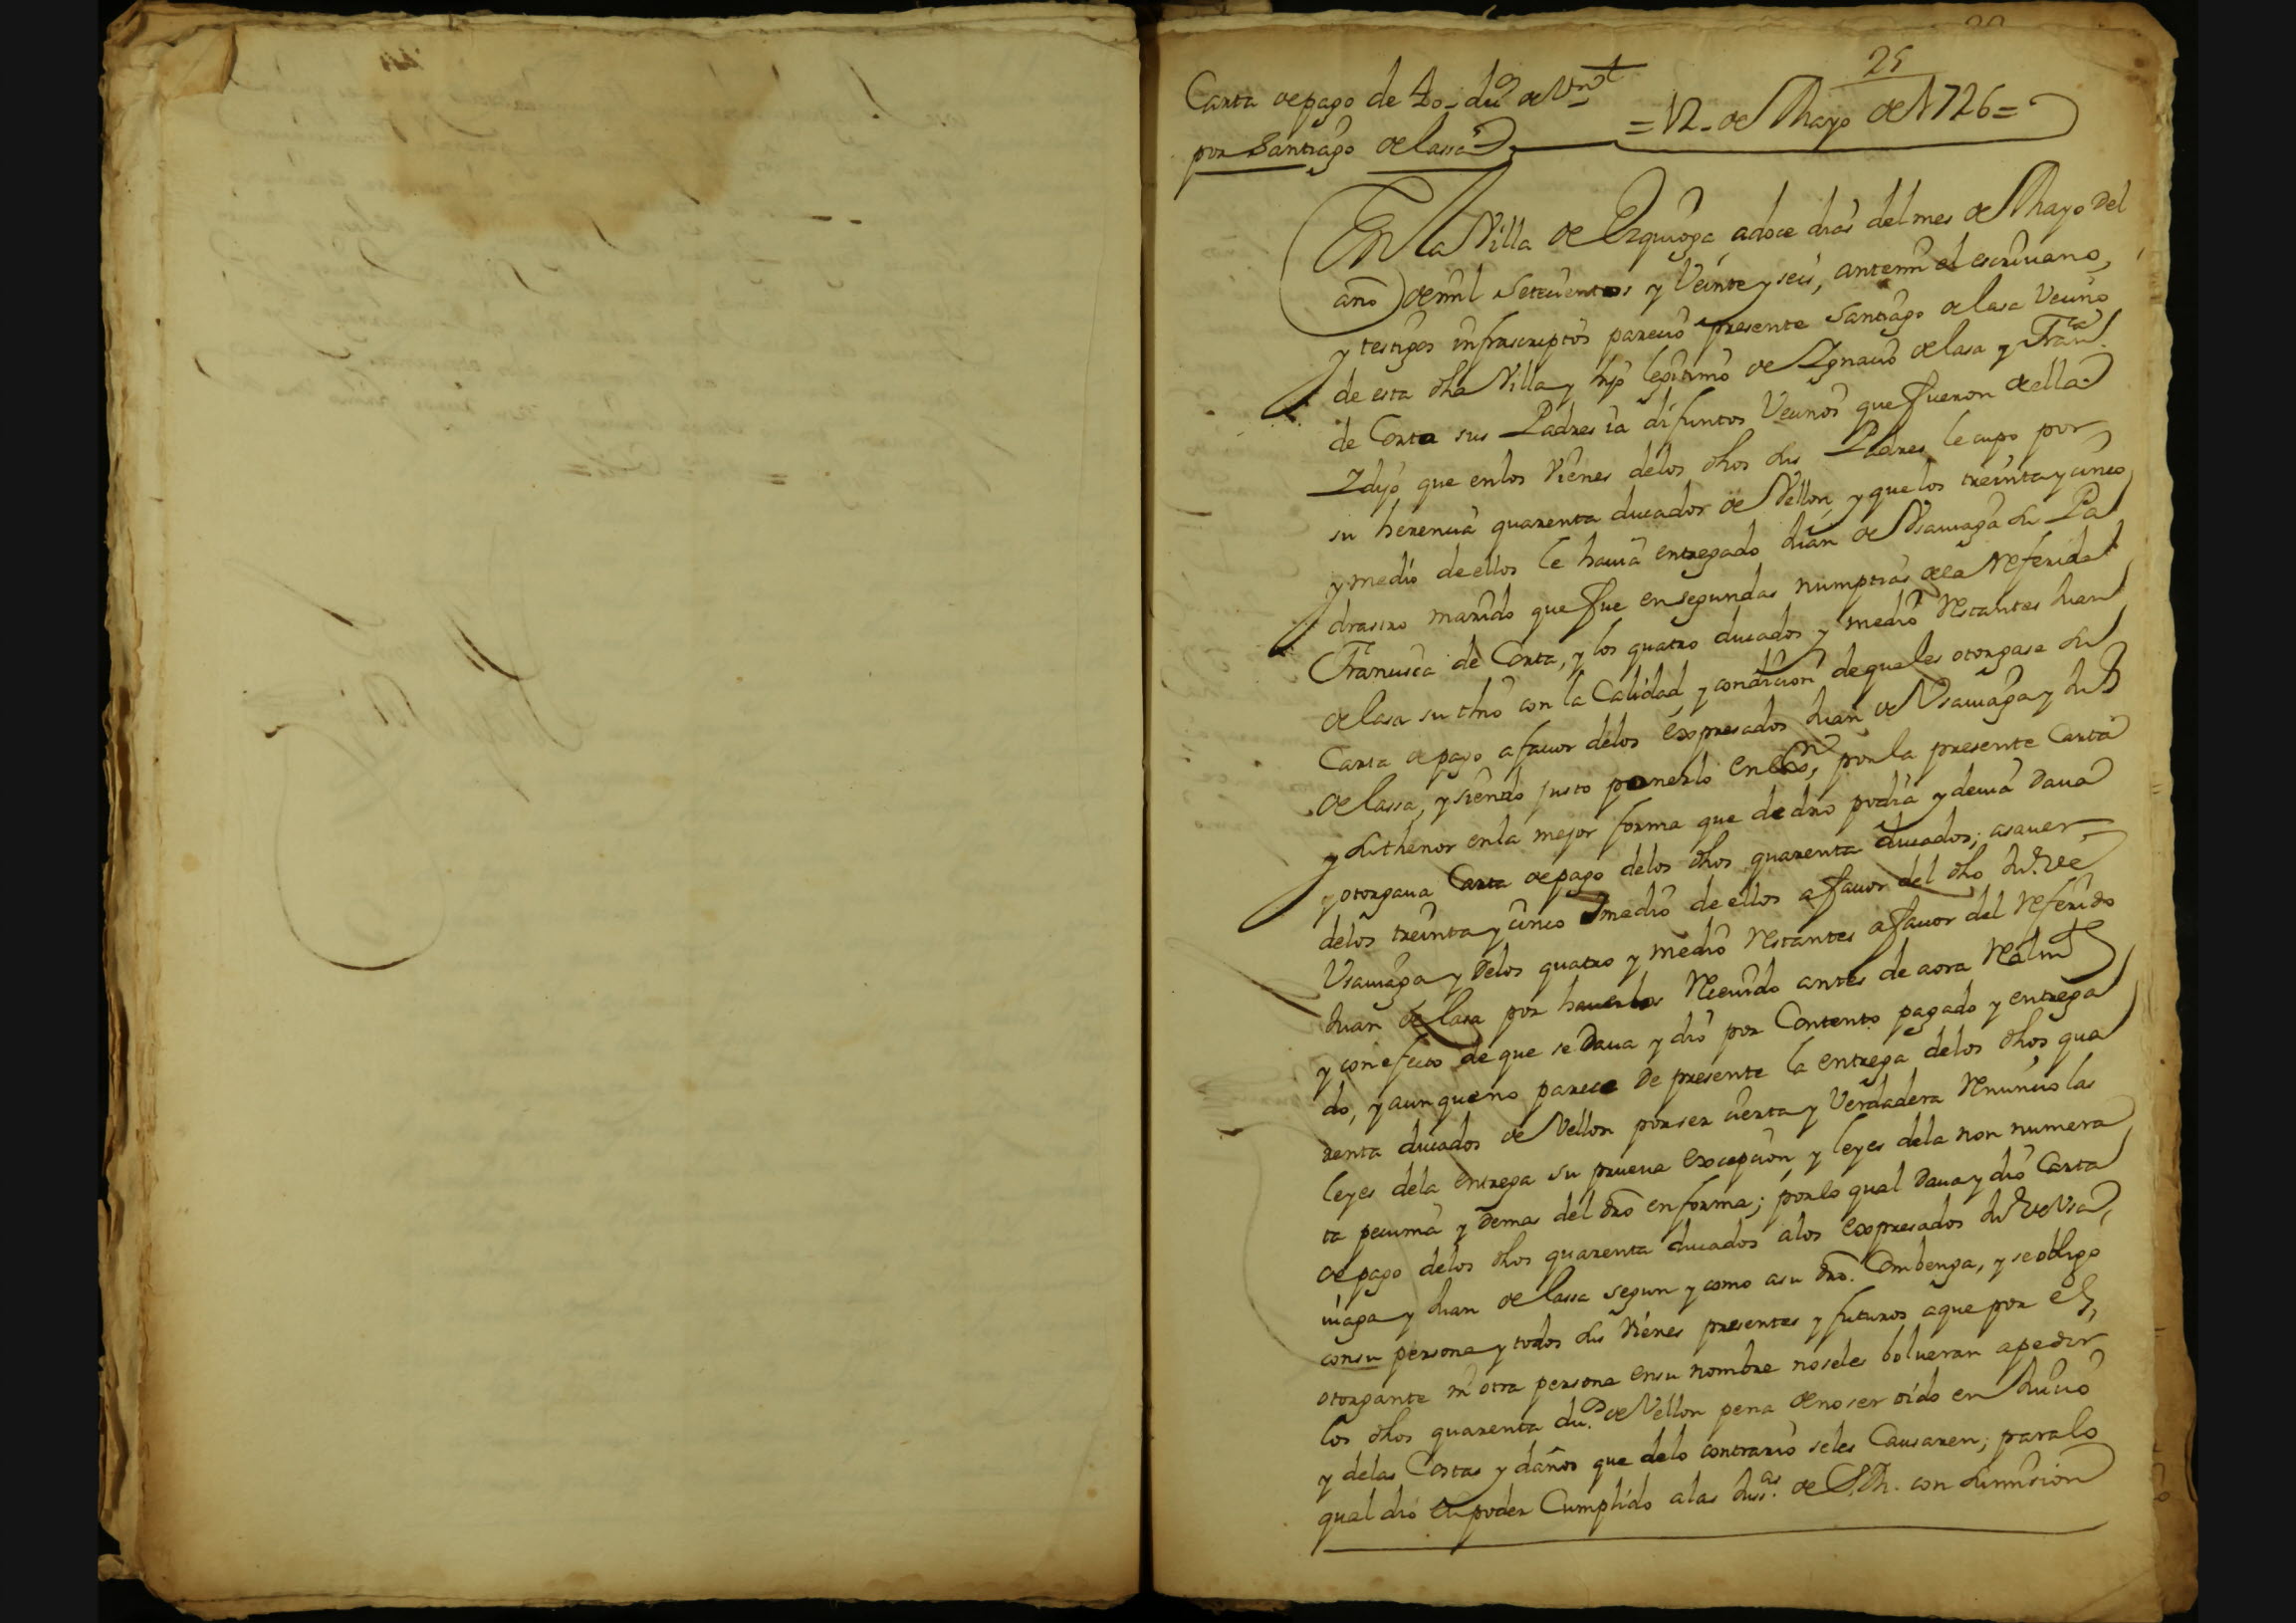 25
Carta de pago de 40 du.s de Vn
= 12 de Mayo de 1726 =
por Santiago de lassa
En la Villa de Ezquioga, a doce dias del mes de Mayo del
año de mil setecientos y Veinte y seis, antemi el escriuano,
y testigos infrascriptos parecio presente Santiago de lasa Vecino
de esta dha Villa y hijo legitimo de Ygnacio de lasa y Fran.ca
de Corta sus Padres ia difuntos Vecinos que fueron de ella
Y dijo que en los Vienes de los dhos sus Padres le cupo por
su herencia quarenta ducados de Vellon, y que los treinta y cinco
y medio de ellos le hauia entregado Juan de Vsauiaga su Pa
drastro marido que fue en segundas numptias de la referida
Francisca de Corta, y los quatro ducados y medio restantes Juan
de lasa su thio con la Calidad, y condicion de que les otorgase su
Carta de pago a fauor de los expresados Juan de Vsauiaga y Ju.n
de lassa, y siendo justo ponerlo en exon, por la presente Carta
y su thenor en la mejor forma que de dro podia y deuia daua
y otorgaua Carta de pago de los dhos quarenta ducados; asauer
de los treinta y cinco y medio de ellos a fauor del dho Ju.n de
Vsauiaga y de los quatro y medio restantes a fauor del referido
Juan de lasa por hauerlos reciuido antes de aora realmte
y con efecto de que se daua y dio por Contento pagado y entrega
do, y aunque no parece de presente la entrega de los dhos qua
renta ducados de Vellon por ser cierta y Verdadera renuncio las
leyes de la entrega su prueua excepcion, y leyes de la non numera
ta pecunia y demas del dro en forma; por lo qual daua y dio Carta
de pago de los dhos quarenta ducados a los expresados Ju.n de Vsa,
uiaga y Juan de lassa segun y como a su dro. Combenga, y se obligo
con su persona y todos sus Vienes presentes y futuros a que por el,
otorgante ni otra persona en su nombre no se les bolueran a pedir
los dhos quarenta du.s de Vellon pena de no ser oido en Juicio
y de las Costas y daños que de lo contrario se les Causaren; para lo
qual dio su poder Cumplido a las Jus.as de S.M. con sumision